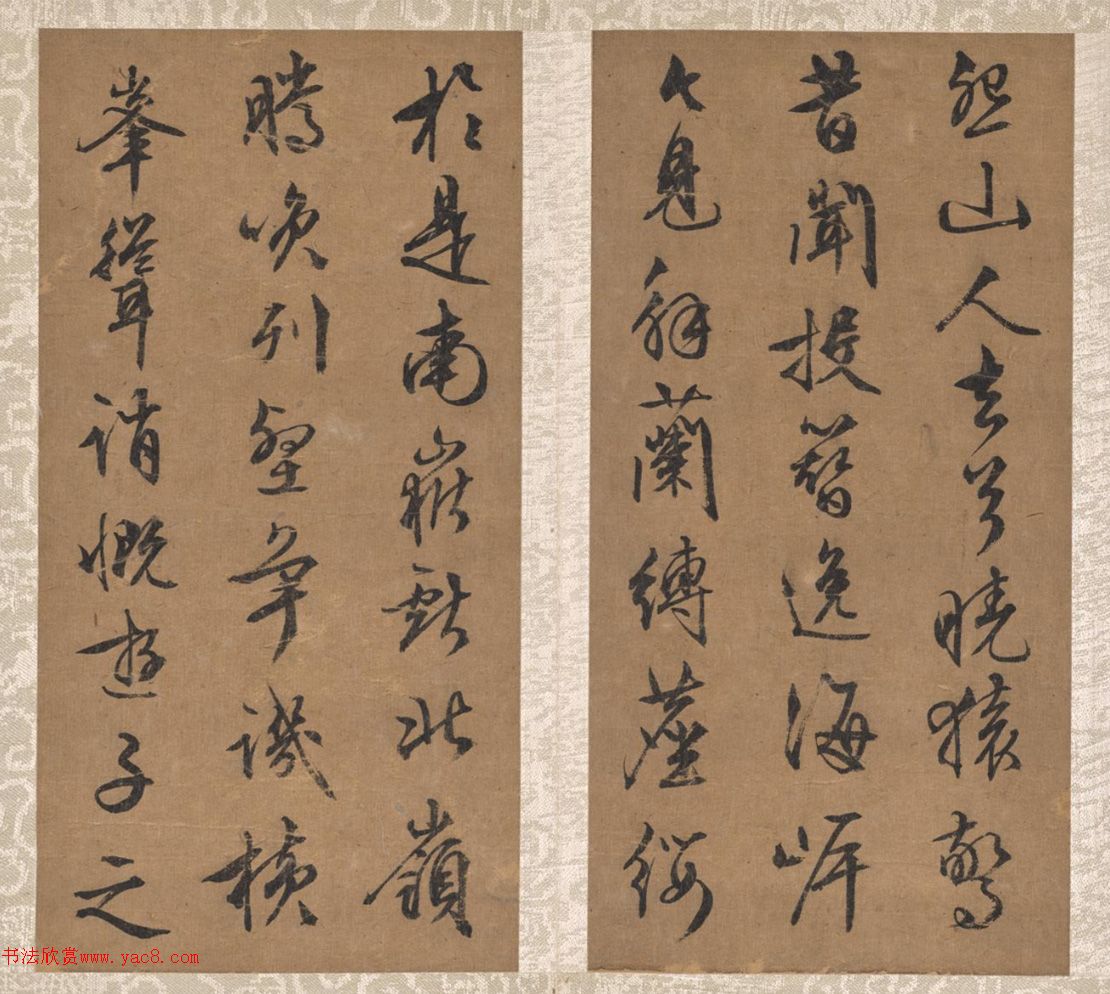 怨山人去兮曉猿驚
昔聞投簪逸海岸
今見解蘭縛塵纓
於是南嶽獻北嶺
騰咲列壑爭譏横
峯聳誚慨遊子之
书法欣赏www.yac8.com